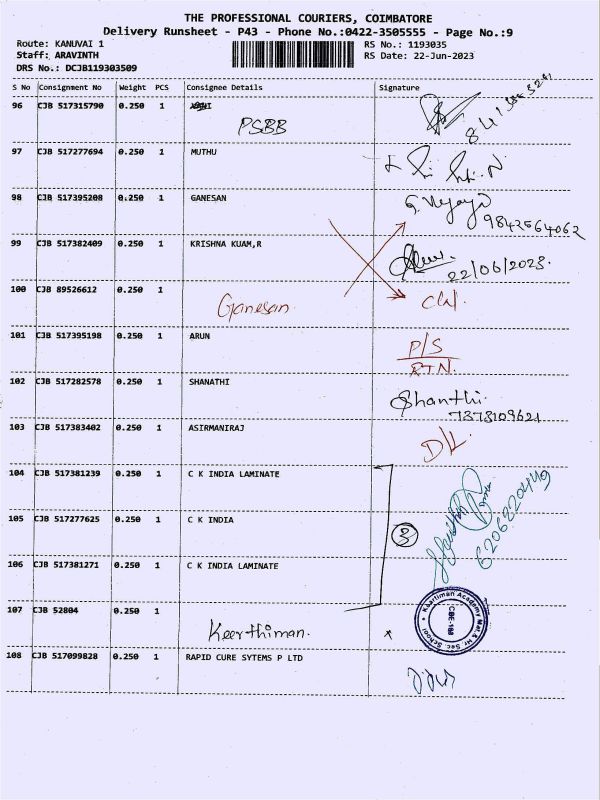 THE PROFESSIONAL COURIERS, COIMBATORE
Delivery Runsheet - P43 - Phone No.:0422-3505555 - Page No.:9
Route: KANUVAI 1 RS No.: 1193035
Staff: ARAVINTH RS Date: 22-Jun-2023
DRS No.: DCJB119303509
S No Consignment No Weight PCS Consignee Details Signature
96 CJB 517315790 0.250 1
PSBB
97 CJB 517277694 0.250 1 MUTHU
98 CJB 517395208 0.250 1 GANESAN
9842564062
99 CJB 517382409 0.250 1 KRISHNA KUAM,R
22/06/2023.
100 CJB 89526612 0.250 1
Ganesan
101 CJB 517395198 0.250 1 ARUN P/S
RTN.
102 CJB 517282578 0.250 1 SHANATHI Shanthi.
7373109621
103 CJB 517383402 0.250 1 ASIRMANIRAJ D/L
104 CJB 517381239 0.250 1 C K INDIA LAMINATE
6206220449
105 CJB 517277625 0.250 1 C K INDIA
3
106 CJB 517381271 0.250 1 C K INDIA LAMINATE
107 CJB 52804 0.250 1
Keerthiman.
Academy Mat. & Hr. Sec. School
108 CJB 517099828 0.250 1 RAPID CURE SYTEMS P LTD